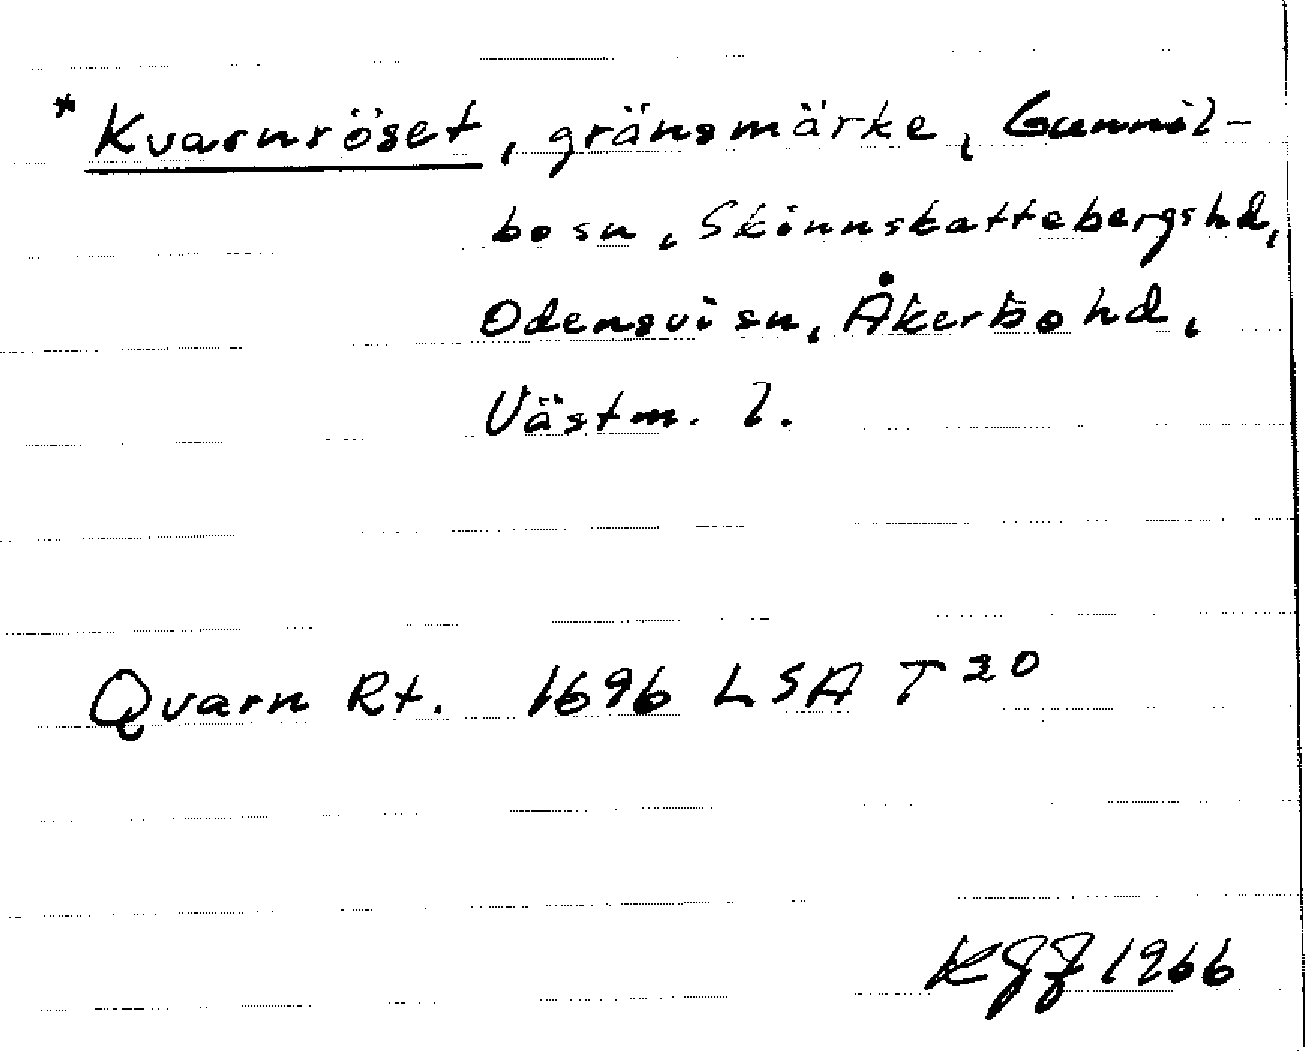 *Kvarnröset, gränsmärke, Gunnil-
bo sn, Skinnskattebergs hd,
Odensvi sn, Åkerbo hd,
Västm. l.
Qvarn Rt. 1696 LSA T 20
KGF 1966